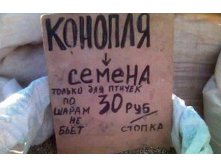 КОНОПЛЯ
↓
семена
только для птичек
по 30 руб
шарам
не
бьет стопка